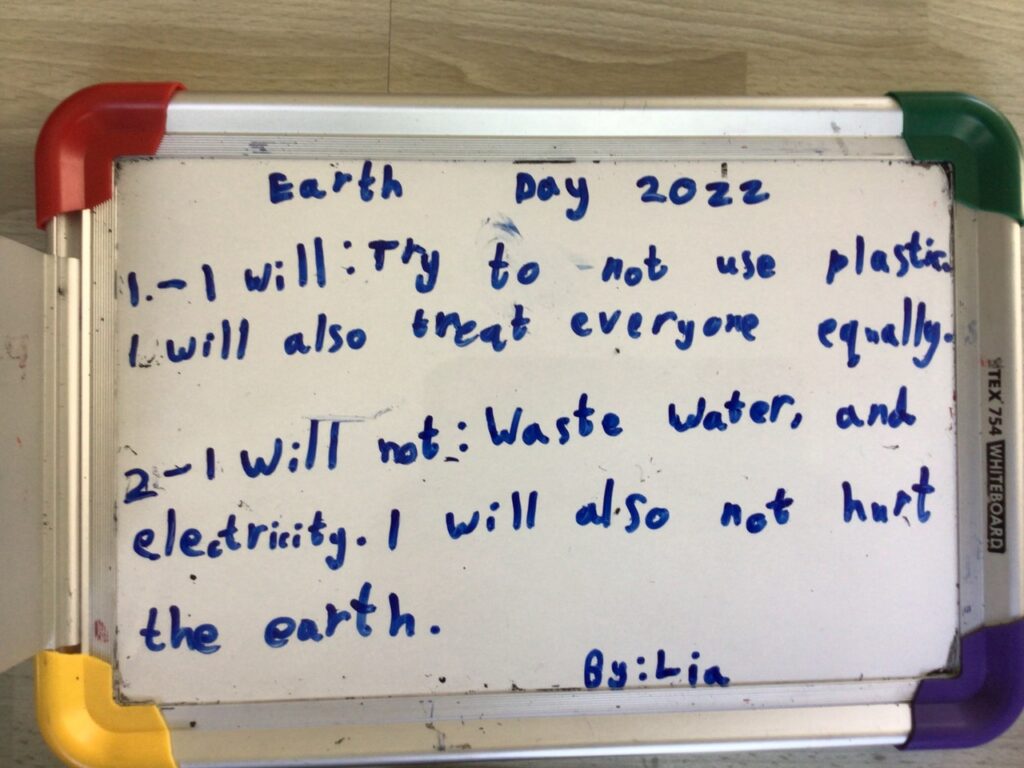 Earth Day 2022
1.-I will: Try to not use plastic.
I will also treat everyone equally.
2-I will not: Waste water, and
electricity. I will also not hurt
the earth.
By: Lia
TEX 754 WHITEBOARD